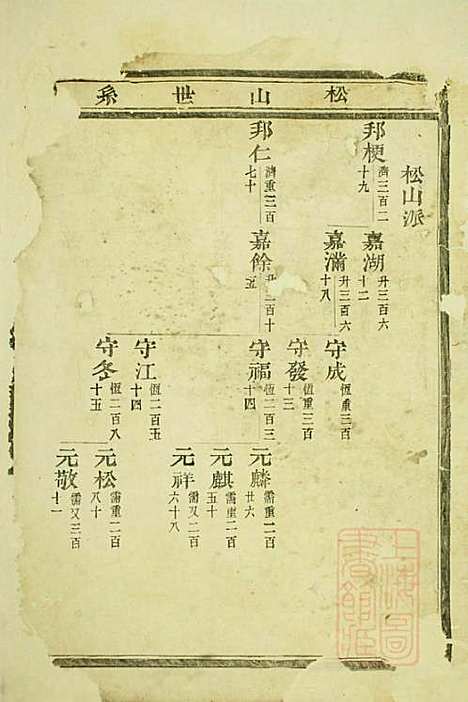 松山世系
松山派
邦梗
濟三百二
十九
邦仁
濟重三百
七十
嘉湖
升三百六
十二
嘉滿
升三百六
十八
嘉餘
升二百十
五
守成
恆重三百
守發
恆重三百
十三
守福
恆二百三
十四
守江
恆二百五
十四
守冬
恆二百八
十五
元麟
需重二百
廿六
元麒
需重二百
五十
元祥
需又二百
六十八
元松
需重二百
八十
元敬
需又三百
十一
上海圖書館藏